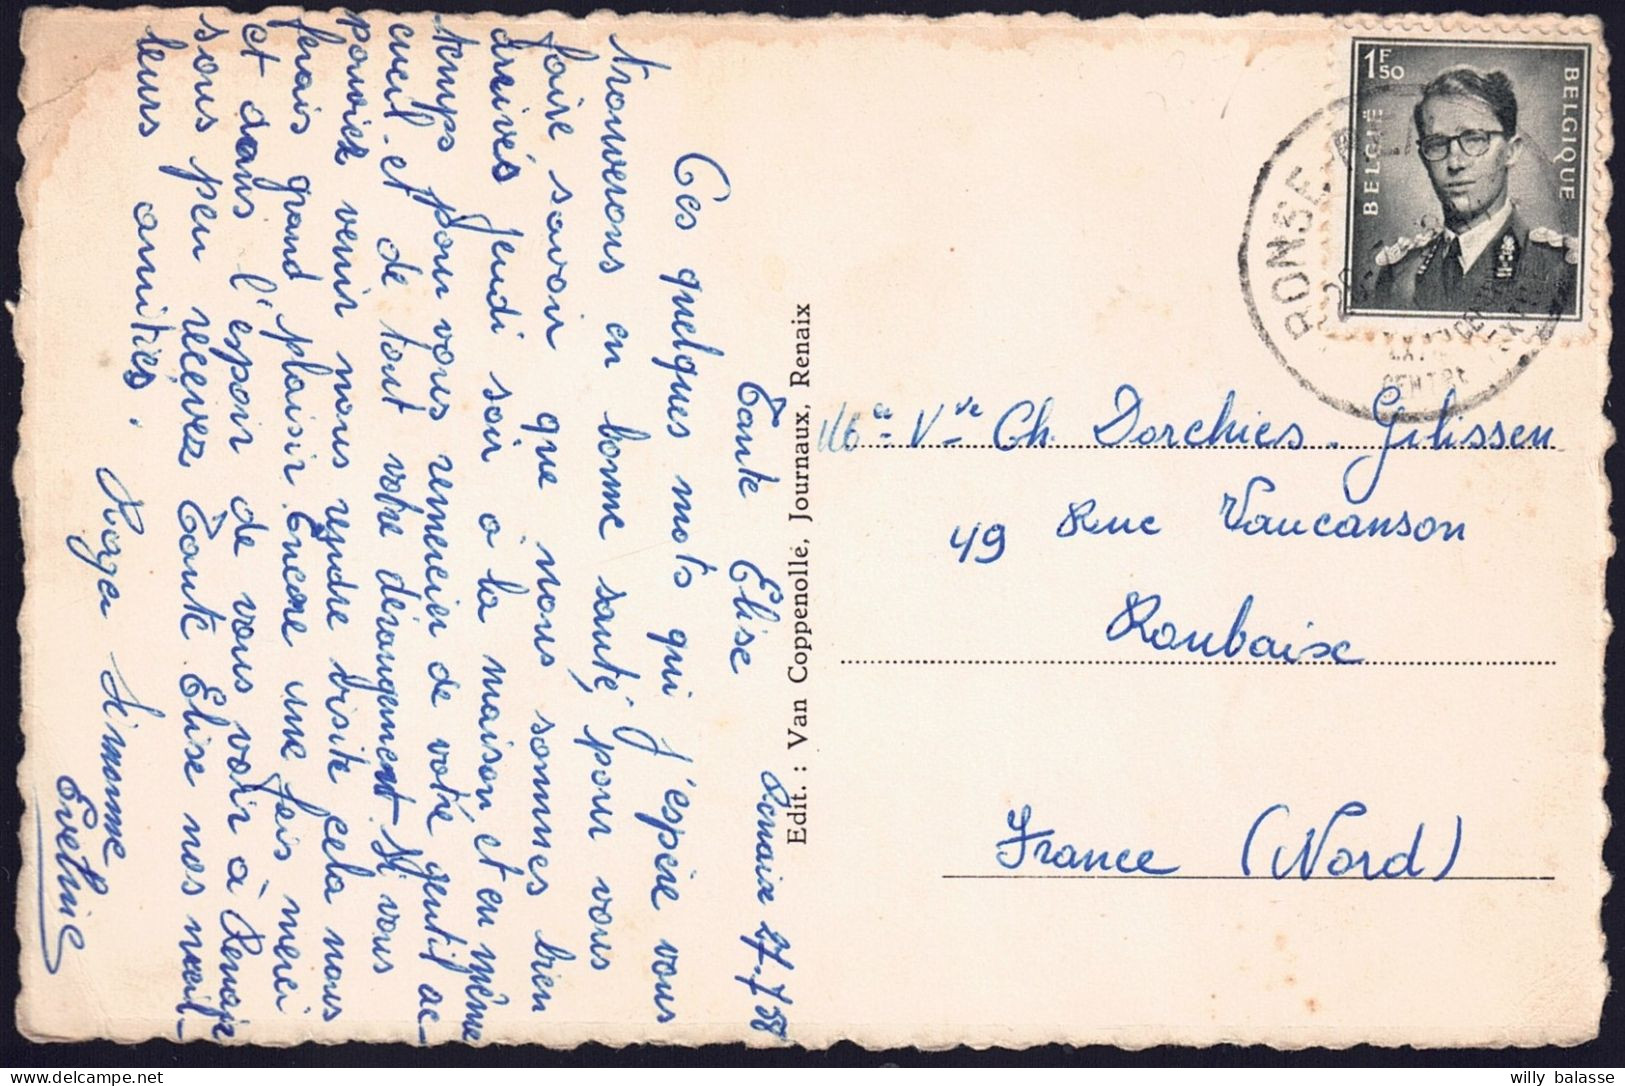 Renaix 27.7.58
Tante Elise
Ces quelques mots qui j'espère vous
trouverons en bonne santé, pour vous
faire savoir que nous sommes bien
arrivés jeudi soir a la maison et en même
temps pour vous remercier de votre gentil ac-
cueil et de tout votre dérangement. Si vous
pouviez venir nous rendre visite cela nous
ferais grand plaisir. Encore une fois merci
et dans l'espoir de vous voir à Renaix
sous peu recevez Tante Elise nos meil-
leurs amitiés.
Roger Simonne
Evelyne
Edit. : Van Coppenolle, Journaux, Renaix
1F50
BELGIË
BELGIQUE
RONSE
CENTRE
Vve Ch. Dorchies. Gilissen
49 Rue Vaucanson
Roubaix
France (Nord)
willy balasse